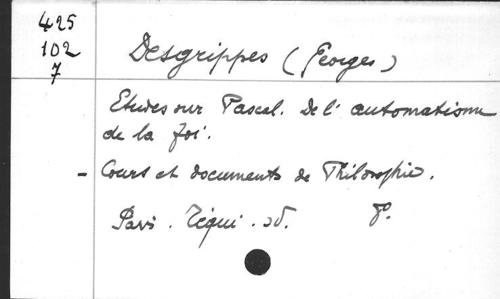 425
102
7
Desgrippes (Georges)
Etudes sur Pascal. De l'automatisme
de la foi.
- Cours et documents de Philosophie.
Paris. Téqui. sd. 8°.